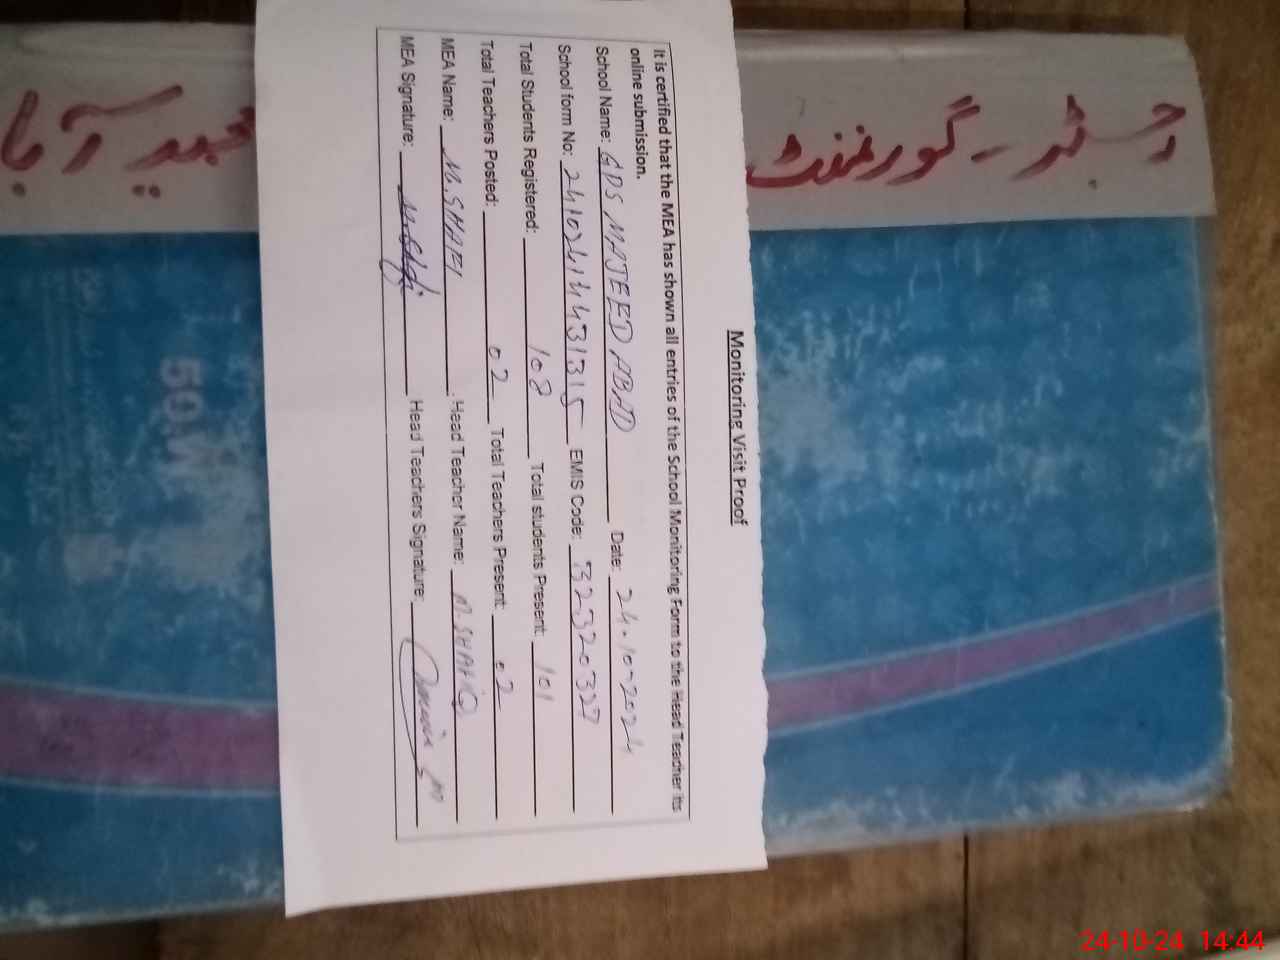 Monitoring Visit Proof
It is certified that the MEA has shown all entries of the School Monitoring Form to the Head Teacher its
online submission.
School Name: GPS MAJEED ABAD Date: 24.10-2024
School form No: 241024144431315 EMIS Code: 32320327
Total Students Registered: 108 Total students Present: 101
Total Teachers Posted: 02 Total Teachers Present: 02
MEA Name: M. SHAFI Head Teacher Name: M. SHAFIQ
MEA Signature: M. Shafi Head Teachers Signature:
رجسٹر - گورنمنٹ
مجید آبا
50W
24-10-24 14:44